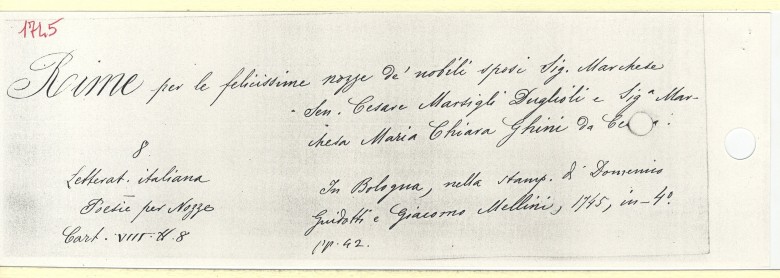 1745
Rime per le felicissime nozze de' nobili sposi Sig. Marchese
Sen. Cesare Marsigli Duglioli e Sig.ª Mar-
chesa Maria Chiara Ghini da
8
Letterat. italiana
Poesie per Nozze
Cart. VIII. N. 8
In Bologna, nella stamp. di Domenico
Guidotti e Giacomo Mellini, 1745, in-4º.
pp. 42.